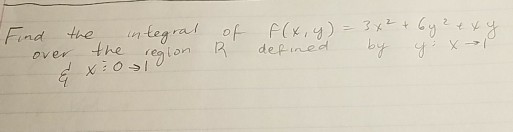 Find the integral of f(x,y) = 3x² + 6y² + xy
over the region R defined by y: x→1
& x: 0→1